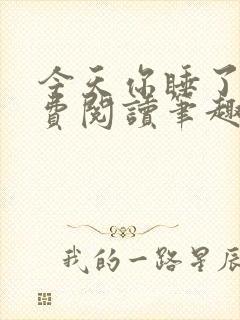 今天你睡了
費閱讀筆趣
我的一路星辰